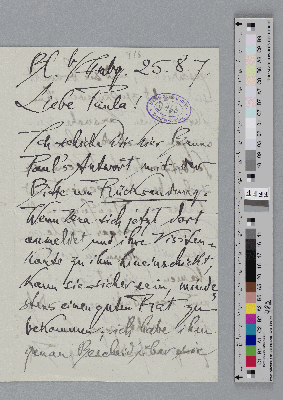 Bl. b/Hbg. 25.8.7.
Liebe Paula!
Ich schicke Dir hier Bruno
Paul's Antwort mit der
Bitte um Rücksendung.
Wenn Vera sich jetzt dort
anmeldet und ihre Visiten-
karte zu ihm hineinschickt
kann sie sicher sein minde-
stens einen guten Rat zu
bekommen, ich habe ihm
genau Bescheid über sie